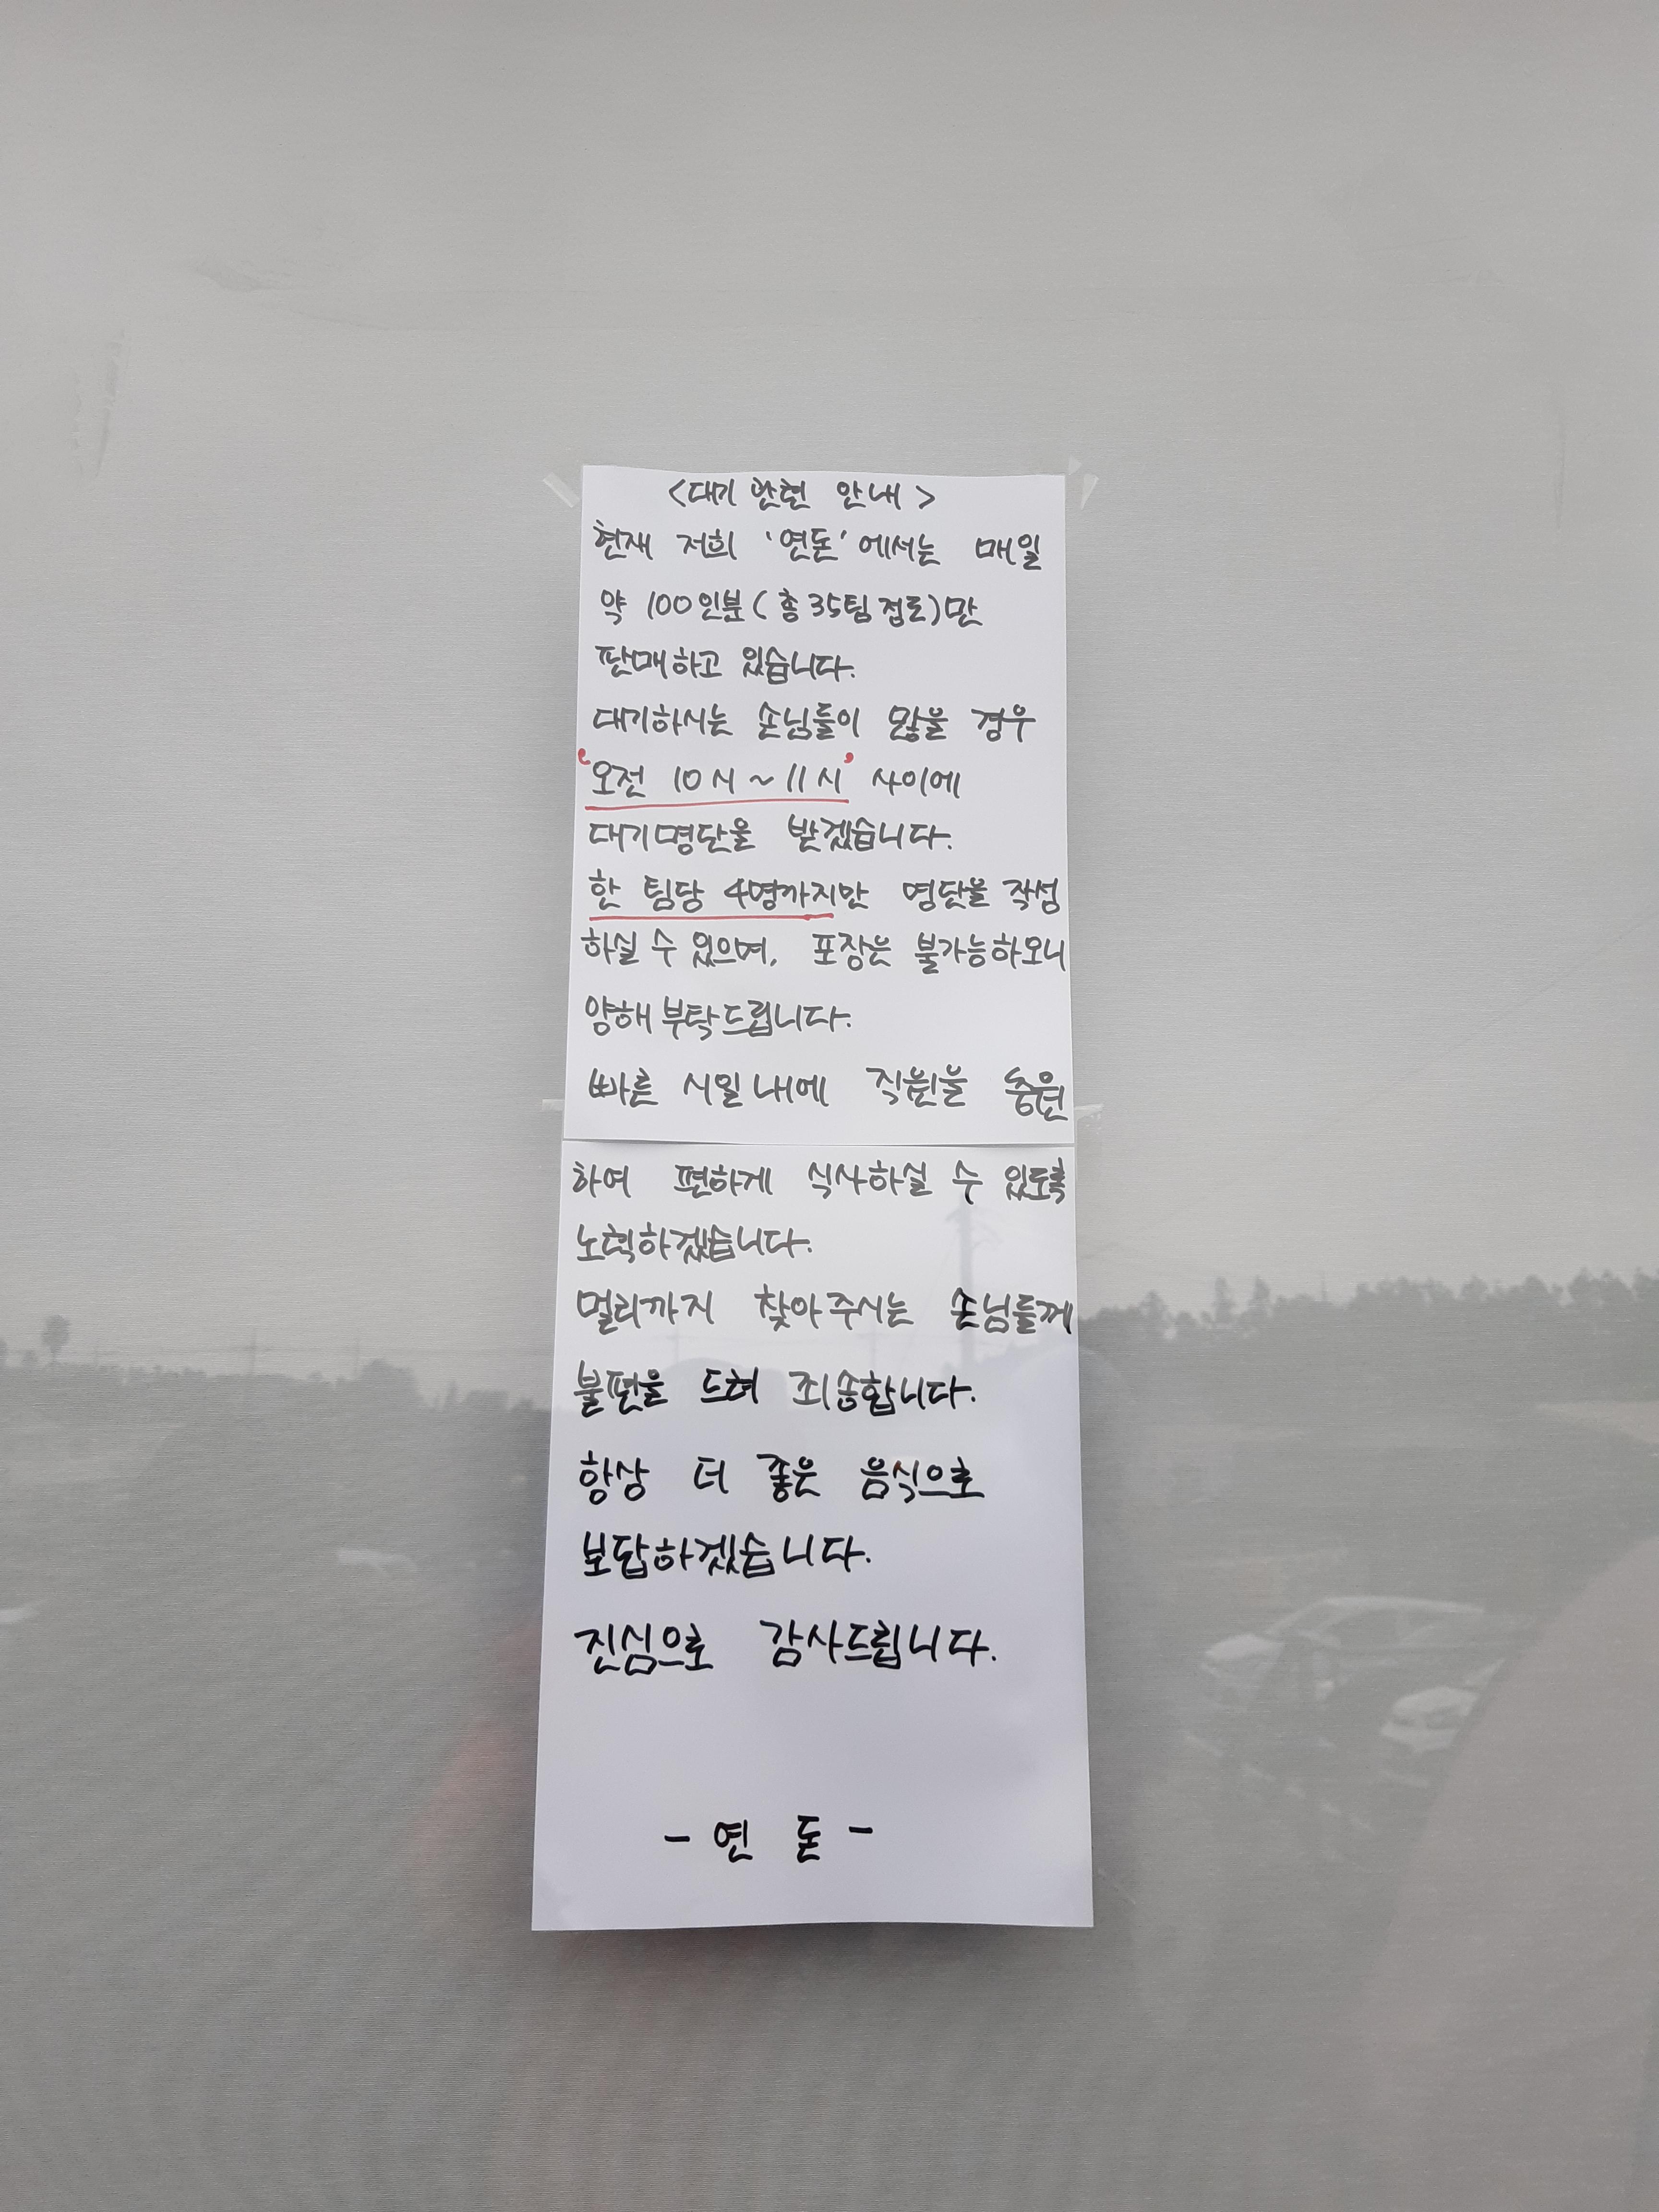 <대기 관련 안내>
현재 저희 '연돈'에서는 매일
약 100인분(총 35팀 정도)만
판매하고 있습니다.
대기하시는 손님들이 많을 경우
'오전 10시~11시' 사이에
대기명단을 받겠습니다.
한 팀당 4명까지만 명단을 작성
하실 수 있으며, 포장은 불가능하오니
양해 부탁드립니다.
빠른 시일 내에 직원을 충원
하여 편하게 식사하실 수 있도록
노력하겠습니다.
멀리까지 찾아주시는 손님들께
불편을 드려 죄송합니다.
항상 더 좋은 음식으로
보답하겠습니다.
진심으로 감사드립니다.
- 연 돈 -